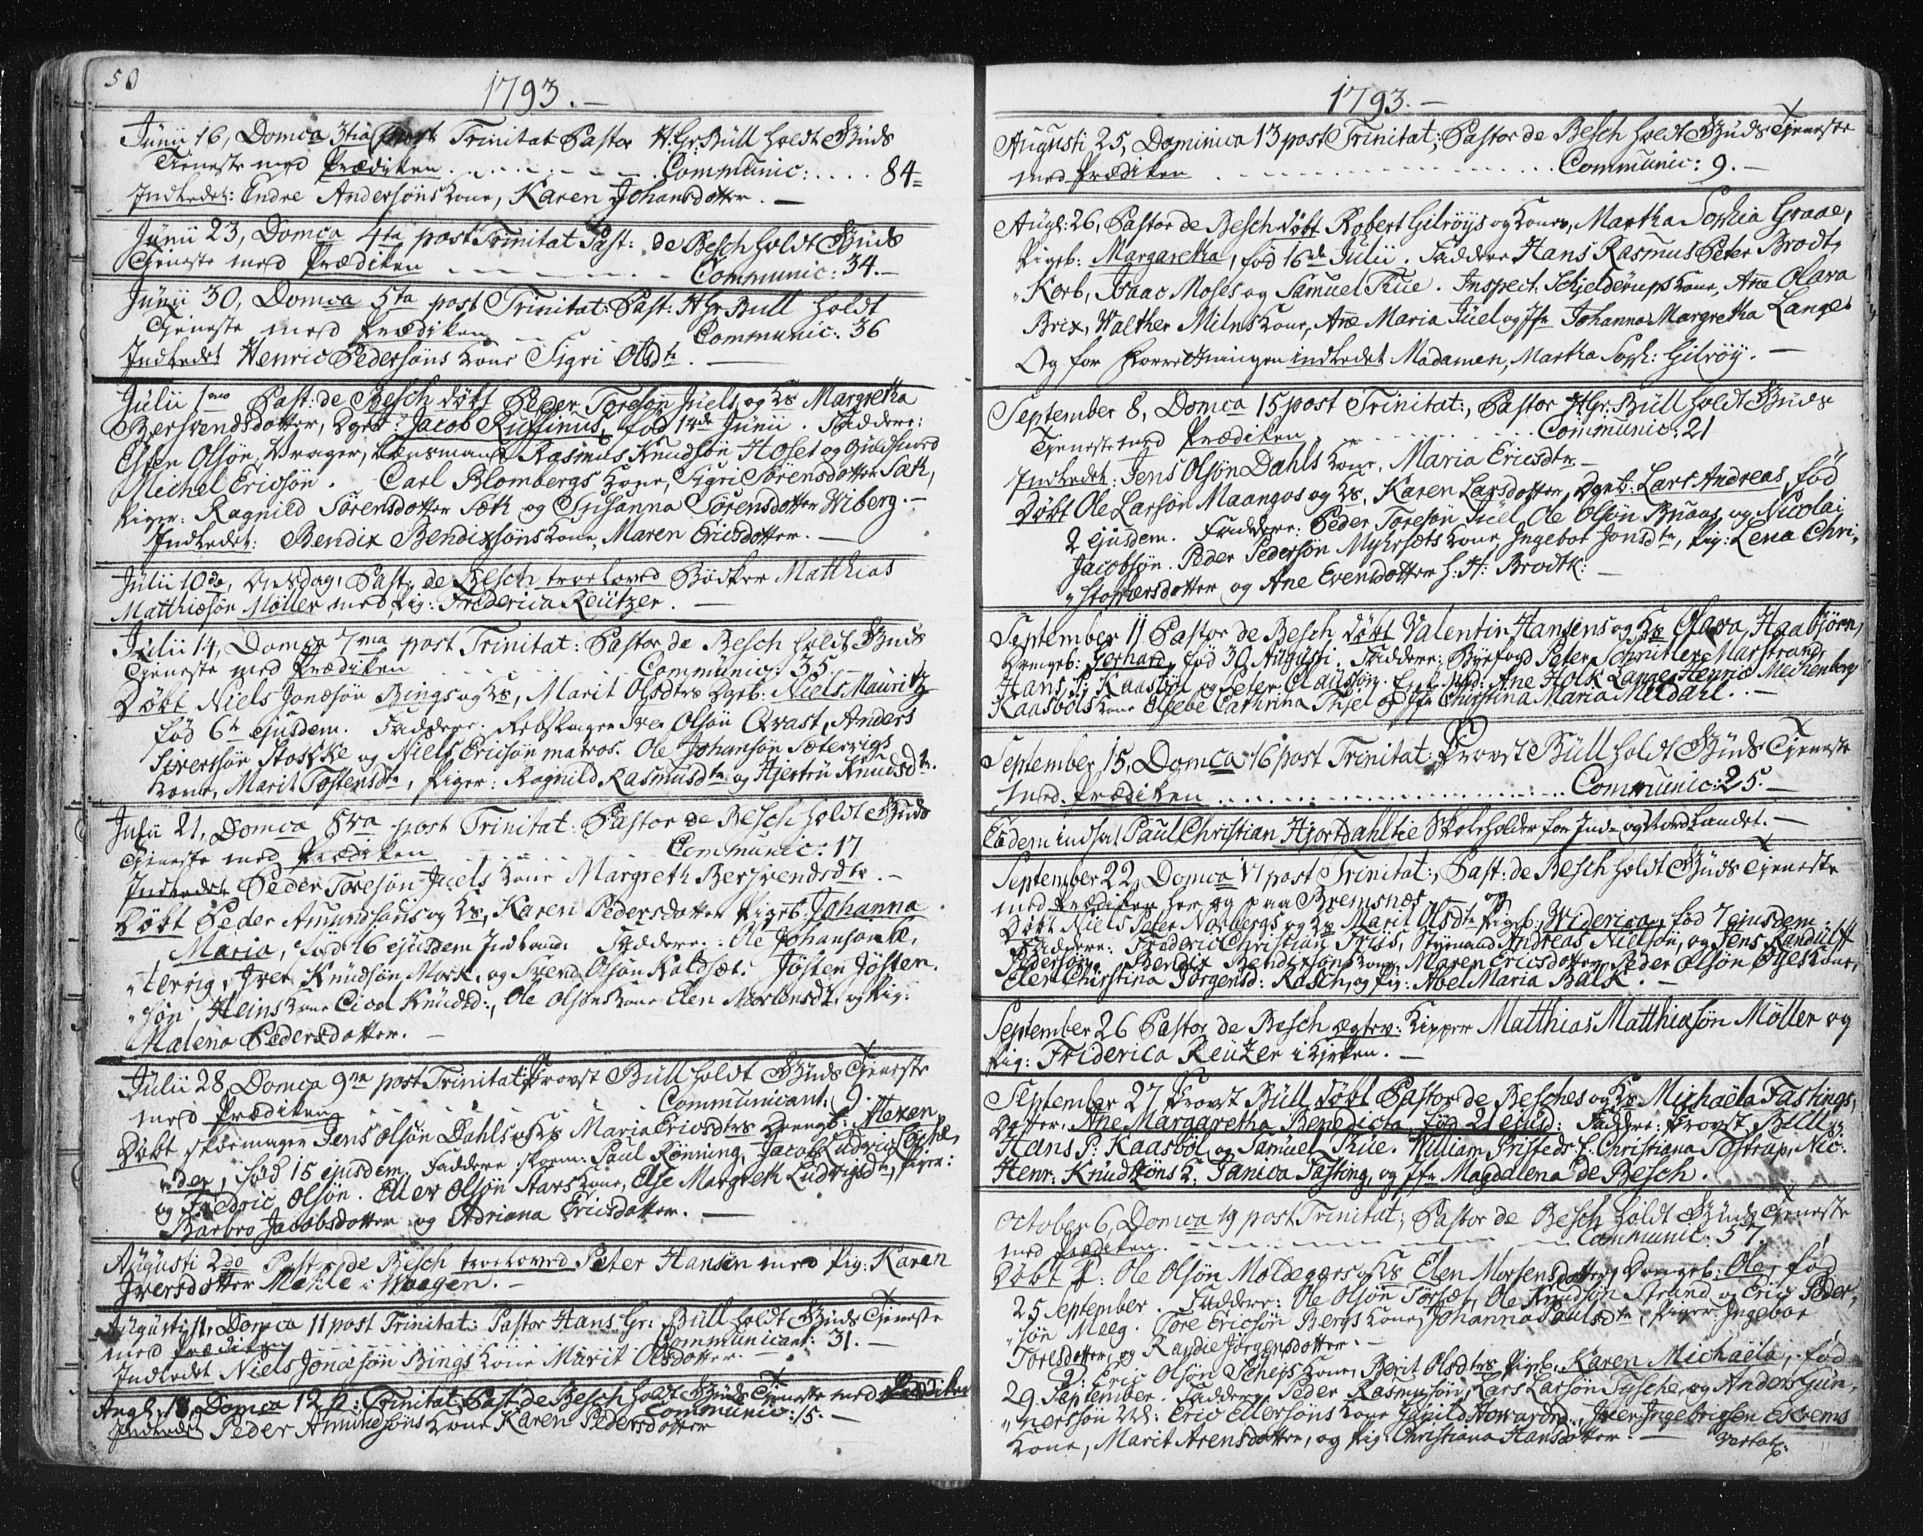 50
1793. —
Junii 16, Domca 3tia post Trinitat Pastor H. Gr: Büll holdt Guds
Tieneste med Prædiken . . . . . . . Communic: . . . . 84=
Indledet: Endre Andersöns Kone, Karen Johansdotter. —
Junii 23, Domca 4ta post Trinitat Past: de Besch holdt Guds
Tjeneste med Prædiken . . . . . . . Communic: 34. —
Junii 30, Domca 5ta post Trinitat: Past: H Gr Bull holdt
Tjeneste med Prædiken . . . . . . . Communic: 36
Indledet Henric Pedersöns Kone Sigri Olsdtr —
Julii 1mo Past: de Besch döbt Peder Toresön Juels og Hs Margretha
Bersvendsdotter, Dgeb: Jacob Ruffinus, föd 14de Junii. Faddere:
Esten Olsön, Vrager, Lensmand Rasmus Knudsön Hoset og Guldsmed
Michel Ericsön. Carl Blombergs Kone, Sigri Sörensdotter Sæth,
Piger: Ragnild Sörensdotter Sæth og Susanna Sörensdotter Wiberg. —
Indledet: Bendix Bendixsöns Kone, Maren Ericsdotter. —
Julii 10de, Onsdag, Past: de Besch troeloved Bödker Matthias
Matthiæsön Möller med Pig: Friderica Reützer. —
Julii 14, Domca 7ma post Trinitat: Pastor de Besch holdt Guds
Tjeneste med Prædiken . . . . . . . Communic: 35
Döbt Niels Jonæsön Rings og Hs, Marit Olsdtrs Dgeb: Niels Mauritz
föd 6te ejusdem. Faddere: Rebslager Iver Olsön Qvast, Anders
Sivertsön Stokke og Niels Ericsön matros. Ole Johansön Sætervigs
Kone, Marit Tostensdtr, Piger: Ragnild Rasmusdtr og Hjertru Knudsdtr.
Julii 21, Domca 8va post Trinitat: Pastor de Besch holdt Guds
Tjeneste med Prædiken . . . . . . . Communic: 17
Indledet Peder Toresön Juels Kone Margreth Bersvendsdtr. —
Döbt Peder Amundsöns og Hs, Karen Pedersdotter Pigeb: Johanna
Maria, föd 16 ejusdem Faddere: Ole Johansön Sæ,
"tervig, Iver Knudsön Mork, og Svend Olsön Kaldset. Jösten Jösten,
"sön Heins Kone Cicel Knudsd:, Ole Olsöns Kone Elen Mortensdtr, og Pig:
Malena Pedersdotter. —
Julii 28, Domca 9na post Trinitat: Provst Büll holdt Guds Tjeneste
med Prædiken . . . . . . . Communicant. 9.
Döbt Skoemager Jens Olsön Dahls og Hs Maria Ericsdtrs Drengeb: Alexan,
"der, föd 15 ejusdem. Faddere Skoem: Paul Rönning, Jacob Ludvic
og Fredric Olsön. Eller Olsön Stars Kone, Else Margreth Ludvigsdtr, Piger:
Barbro Jacobsdotter og Adriana Ericsdotter. —
Augusti 2do Past: de Besch troeloved Peter Hansen med Pig: Karen
Iversdotter Mæhle i Waagen. —
Augusti 11, Domca 11 post Trinitat: Pastor Hans Gr: Büll holdt Guds Tjeneste
med Prædiken . . . . . . . Communicant: 31. —
Indledet Niels Jonæsön Rings Kone Marit Olsdotter. —
Augl: 18, Domca 12 p: Trinitat Past de Besch holdt Guds Tjeneste med Prædiken
Communic: 15. —
Indledet Peder Amundsöns Kone Karen Pedersdotter
1793. —
Augusti 25, Dominica 13 post Trinitat: Pastor de Besch holdt Guds Tjeneste
med Prædiken . . . . . . . Communic: 9. —
Augl: 26, Pastor de Besch döbt Robert Gilröys og Kone, Martha Sophia Graae,
Pigeb: Margaretha, föd 16de Julii. Faddere Hans Rasmus Peter Brodt,
"Korb, Isaac Moses og Samuel True. Inspect. Schjelderups Kone, Ane Clara
Brix, Walther Milns Kone, Ane Maria Juel og Jfr Johanna Margretha Lange.
Og for Forretningen indledet Madamen, Martha Soph: Gilröy. —
September 8, Domca 15 post Trinitat:, Pastor H Gr: Büll holdt Guds
Tjeneste med Prædiken . . . . . . . Communic: 21
Indledet: Jens Olsön Dahls Kone, Maria Ericsdtr. —
Döbt Ole Larsön Maangos og Hs, Karen Larsdotter, Dgeb: Lars Andreas, föd
2 ejusdem. Faddere: Peder Toresön Juel, Ole Olsön Bruaas og Nicolai
Jacobsön. Peder Pedersön Myhrsæts Kone, Ingebor Jonsdtr, Pig: Lena Chri,
"stophersdotter og Ane Evensdotter h: H: Brodtk: —
September 11 Pastor de Besch döbt Valentin Hansens og Hs Clara Haabjörn,
Drengeb: Gerhard, föd 30 Augusti. Faddere: Byefogd Peter Schnitler Marstrand,
Hans P: Kaasböl og Peter Clausön. Enk Mad: Ane Holk Lange, Henric Mechenberg
Kaasböls Kone Elsebe Cathrina Thiel og Jfr Christina Maria Meldahl. —
September 15, Domca 16 post Trinitat: Provst Büll holdt Guds Tjeneste
med Prædiken . . . . . . . Communic: 25. —
Eodem indsat Paul Christian Hjortdahl til Skoleholder for Inde og Nordlandet. —
September 22, Domca 17 post Trinitat:, Past: de Besch holdt Guds Tjeneste
med Prædiken her og paa Bremsnæs. —
Döbt Niels Peter Norbergs og Hs Marit Olsdtr Pigeb: Widerica, föd 7 ejusdem.
Faddere: Frederic Christian Friis, Styrmand Andreas Nielsön, og Jens Randulff
Pedersön. Bendix Bendixsöns Kone, Maren Ericsdotter, Peder Olsön Öyes Kone,
Elen Christina Jörgensd: Rasch, og Pig: Abel Maria Balk. —
September 26 Pastor de Besch ægtev: Kipper Matthias Matthiæsön Möller og
Pig: Friderica Reützer i Kirken. —
September 27 Provst Büll döbt Pastor de Besches og Hs Michaëla Fastings,
Datter, Ane Margaretha Benedicta, föd 21 ejusd: Faddere: Provst Büll,
Hans P: Kaasböl og Samuel True. William Fristeds E. Christiana Tostrup, Nic:
Henr: Knudtzöns K. Tamea Fasting, og Jfr Magdalena de Besch.
October 6, Domca 19 post Trinitat:, Pastor de Besch holdt Guds Tjeneste
med Prædiken. . . . . . . Communic: 37.
Döbt 1: Ole Olsön Moldegers og Hs Elen Mortensdotter, Drengeb: Ole, föd
25 September. Faddere: Ole Olsön Torset, Ole Knudsön Strand og Eric Peder,
"sön Meeg. Tore Ericsön Bergs Kone, Johanna Paulsdtr, Piger Ingebor
Torisdotter, og Randie Jörgensdotter. —
2: Eric Olsön Scheis Kone, Berit Olsdtrs Pigeb: Karen Michaëla, föd
29 September. Faddere: Peder Rasmusön, Lars Larsön Tysche, og Anders Gun,
"nersön Eric Ellersöns Kone Gunild Howardsd., Iver Ingebrigtsen Ekrems
Kone, Marit Arensdotter, og Pig: Christiana Hansdotter. —
Vertat: